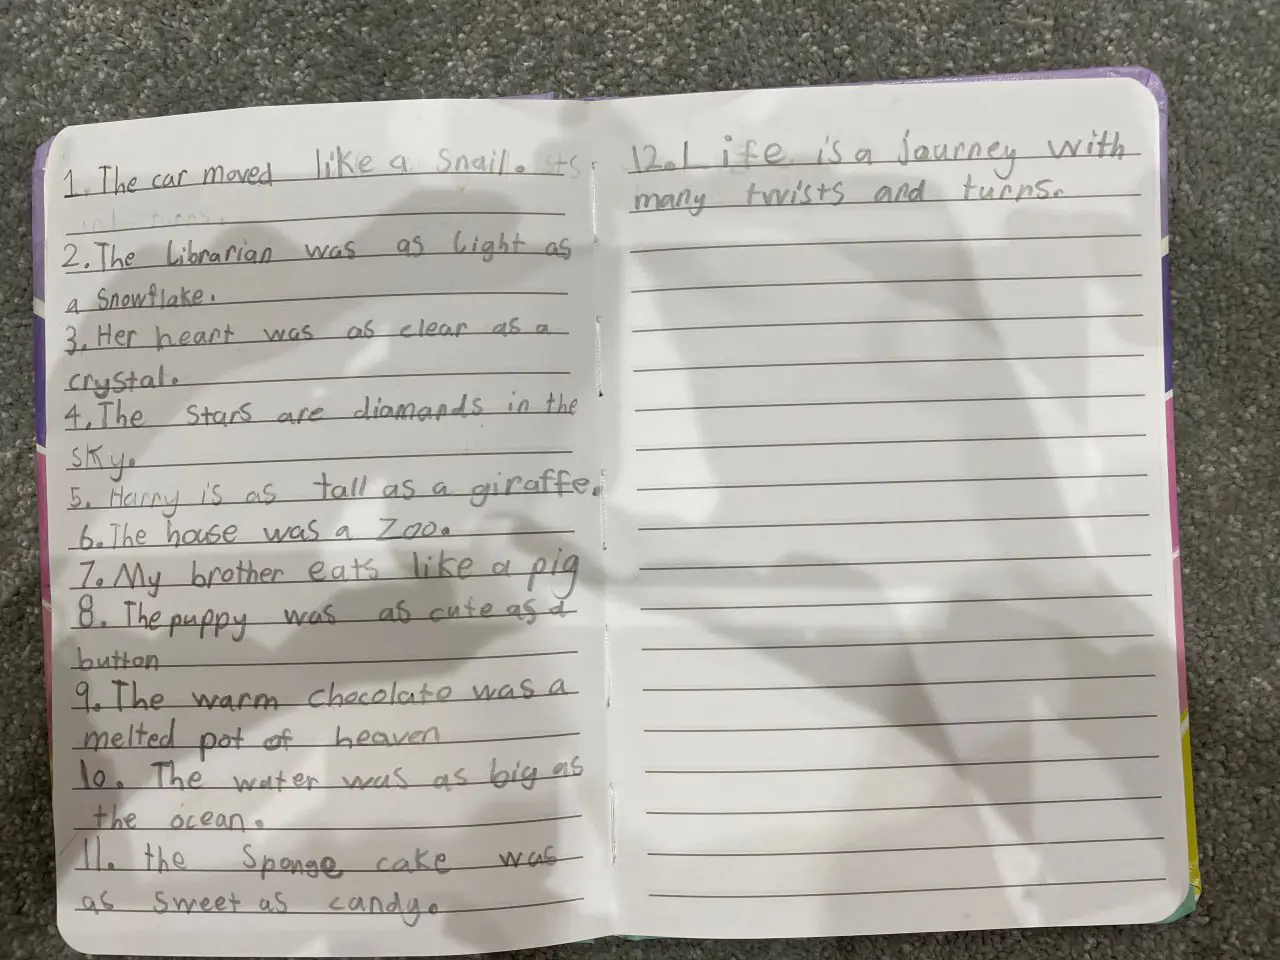 1. The car moved like a Snail. sts
int turns.
2. The Librarian was as light as
a Snowflake.
3. Her heart was as clear as a
crystal.
4. The Stars are diamands in the
sky.
5. Harry is as tall as a giraffe.
6. The house was a Zoo.
7. My brother eats like a pig
8. The puppy was as cute as a
button
9. The warm chocolate was a
melted pot of heaven
10. The water was as big as
the ocean.
11. the Sponge cake was
as sweet as candy.
12. Life is a journey with
many twists and turns.